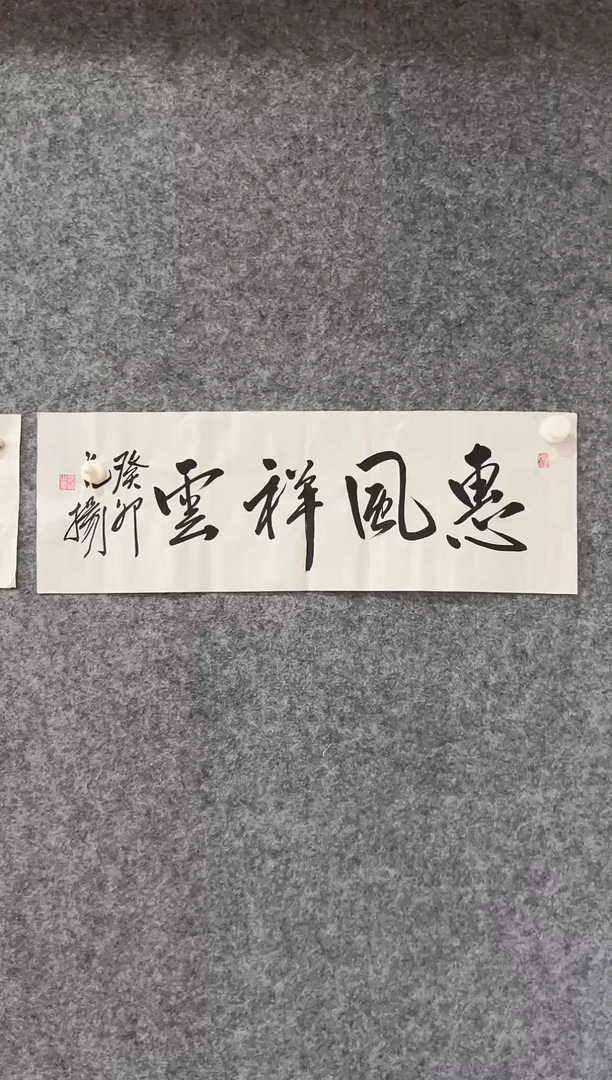 惠風祥雲
癸卯
揚